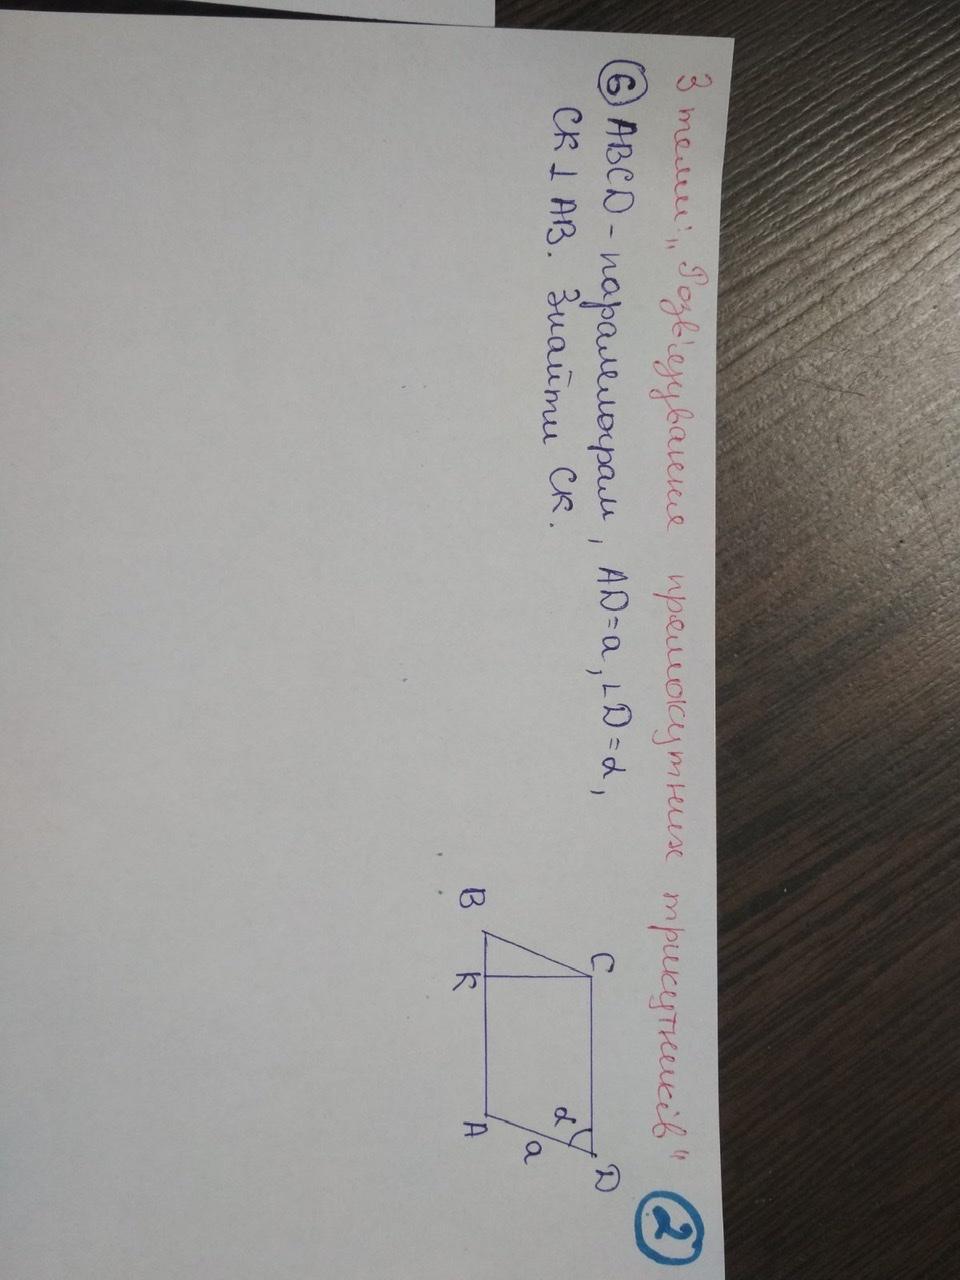 З теми: „Розв'язування прямокутних трикутників"
2
6 ABCD - паралелограм, AD=a, ∠D=α,
CK ⊥ AB. Знайти CK.
C D
α
a
B K A